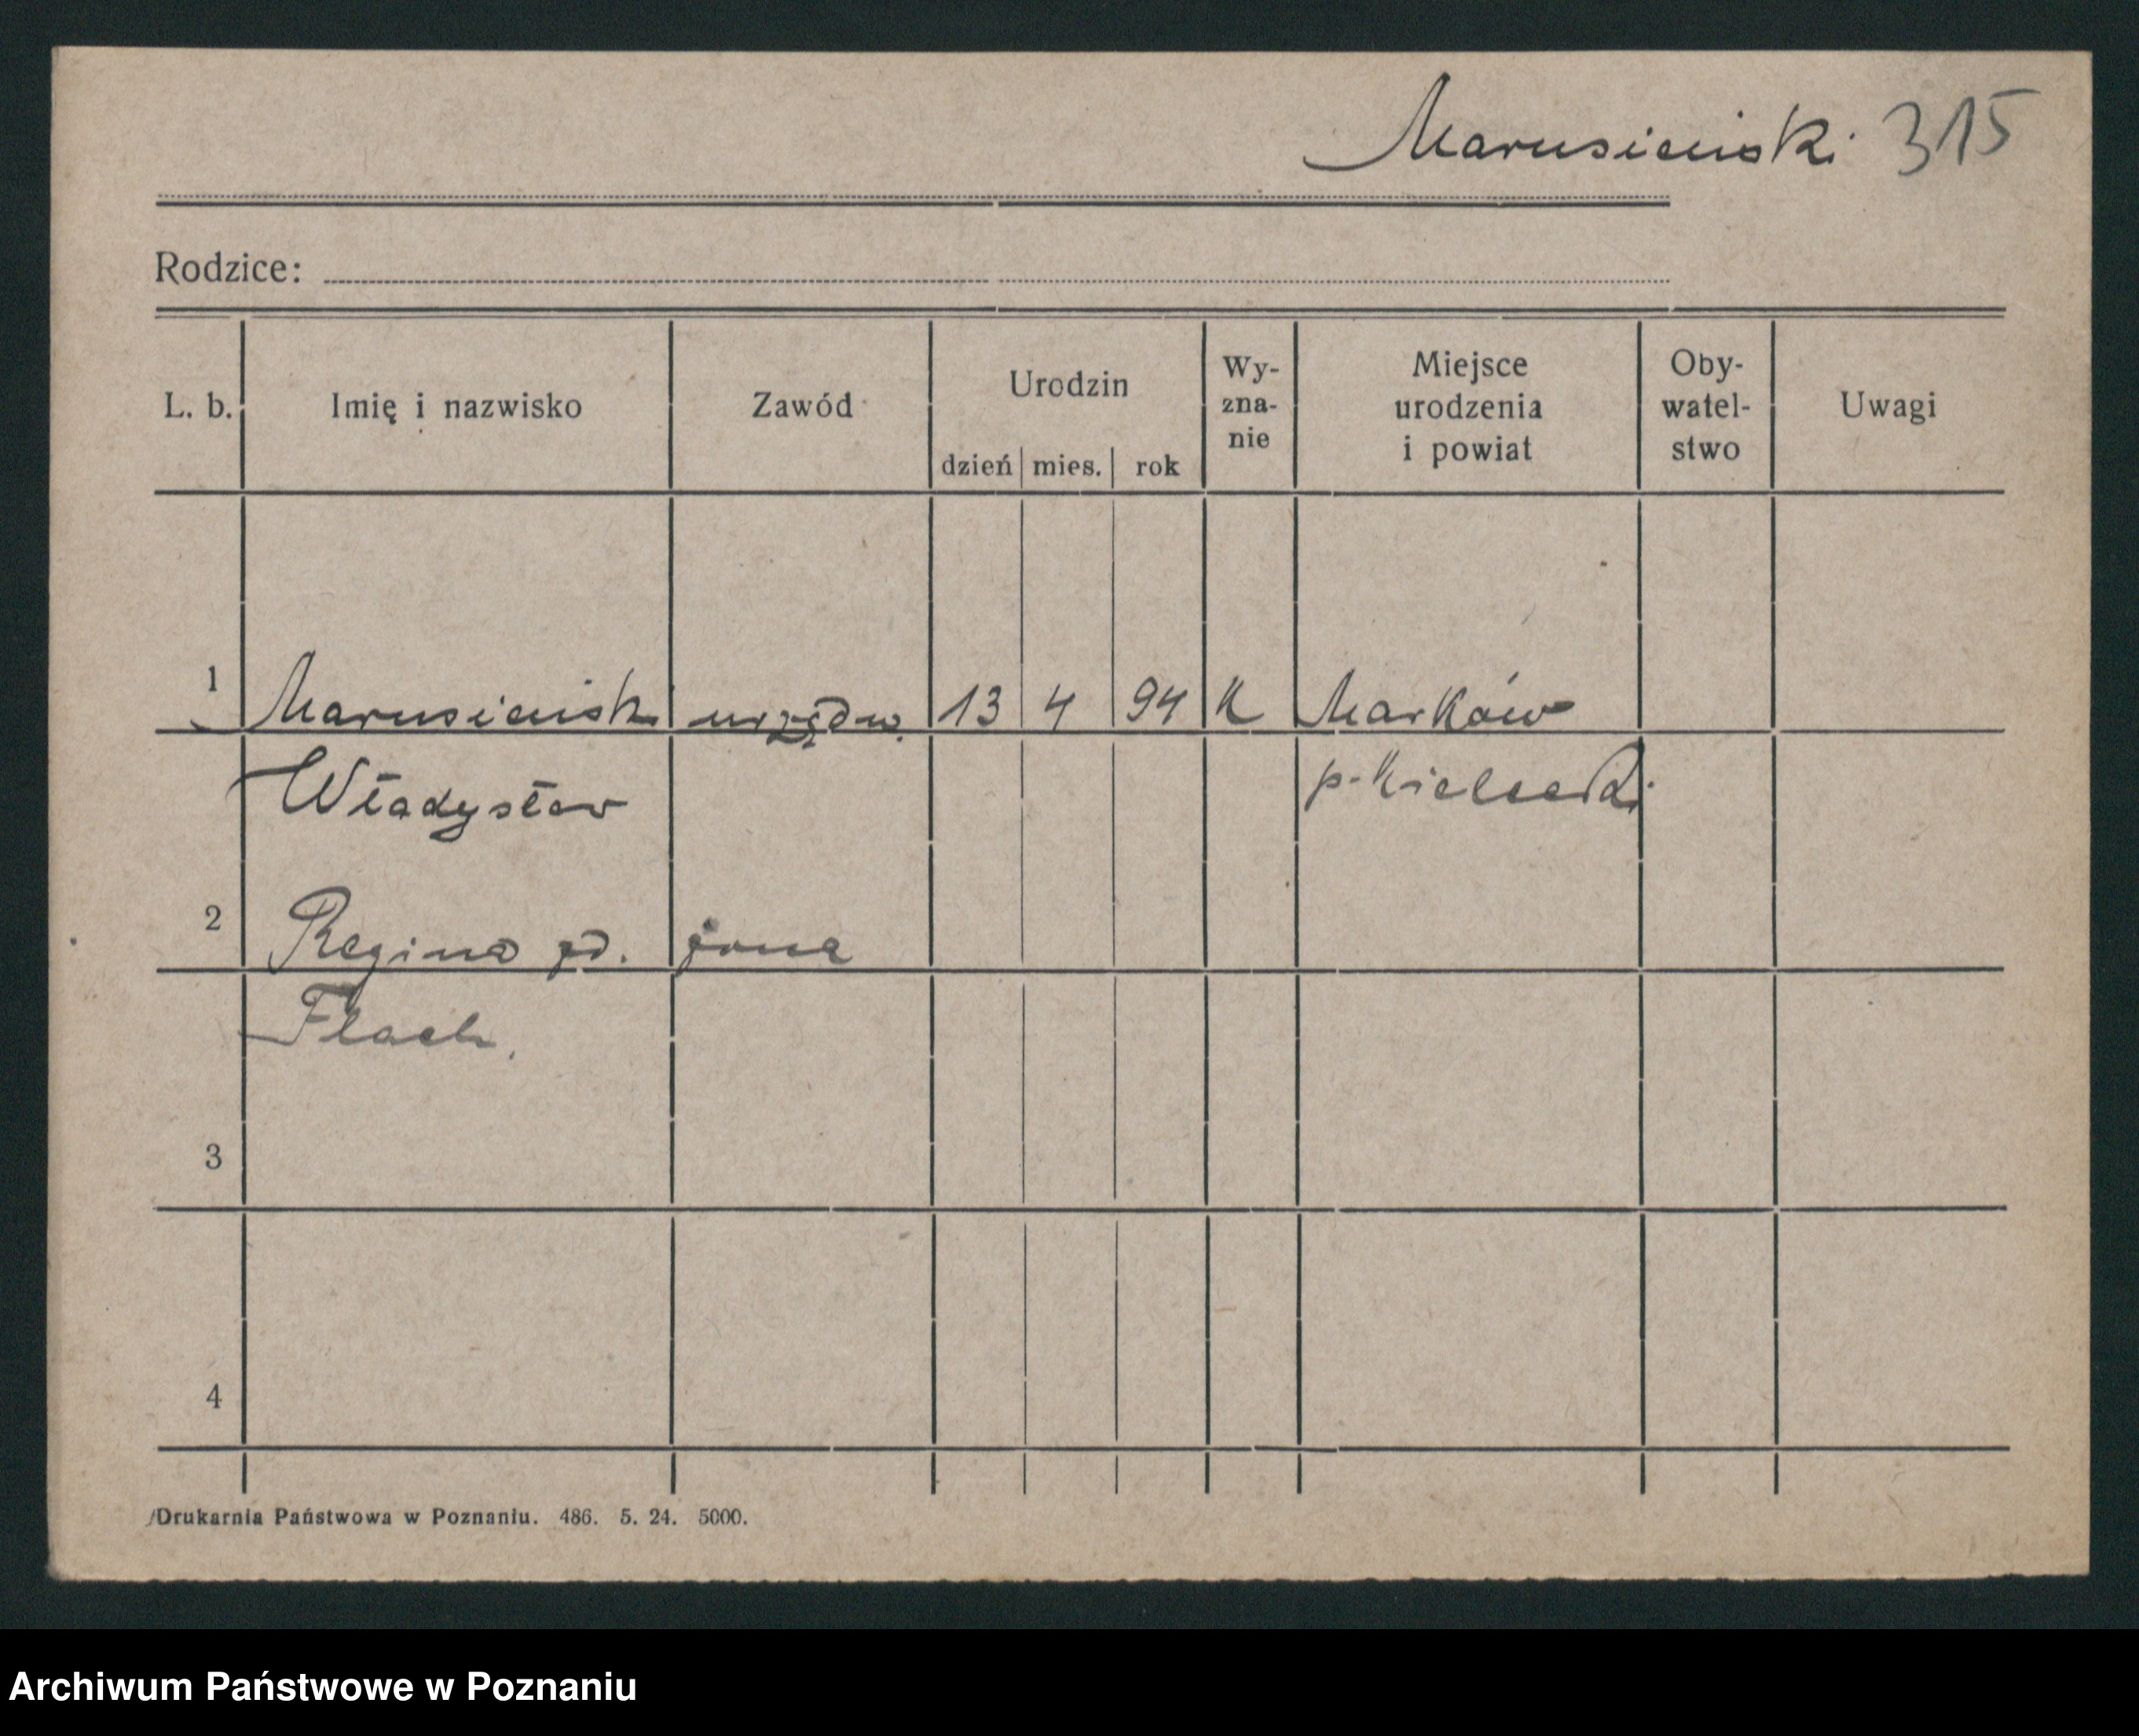 Marusieński 315
Rodzice:
L. b. Imię i nazwisko Zawód Urodzin dzień mies. rok Wy-zna-nie Miejsce urodzenia i powiat Oby-watel-stwo Uwagi
1 Marusieński urzędw. 13 4 94 K Marków
Władysław p. Kielecki
2 Regina zd. żona
Flach.
3
4
Drukarnia Państwowa w Poznaniu. 486. 5. 24. 5000.
Archiwum Państwowe w Poznaniu